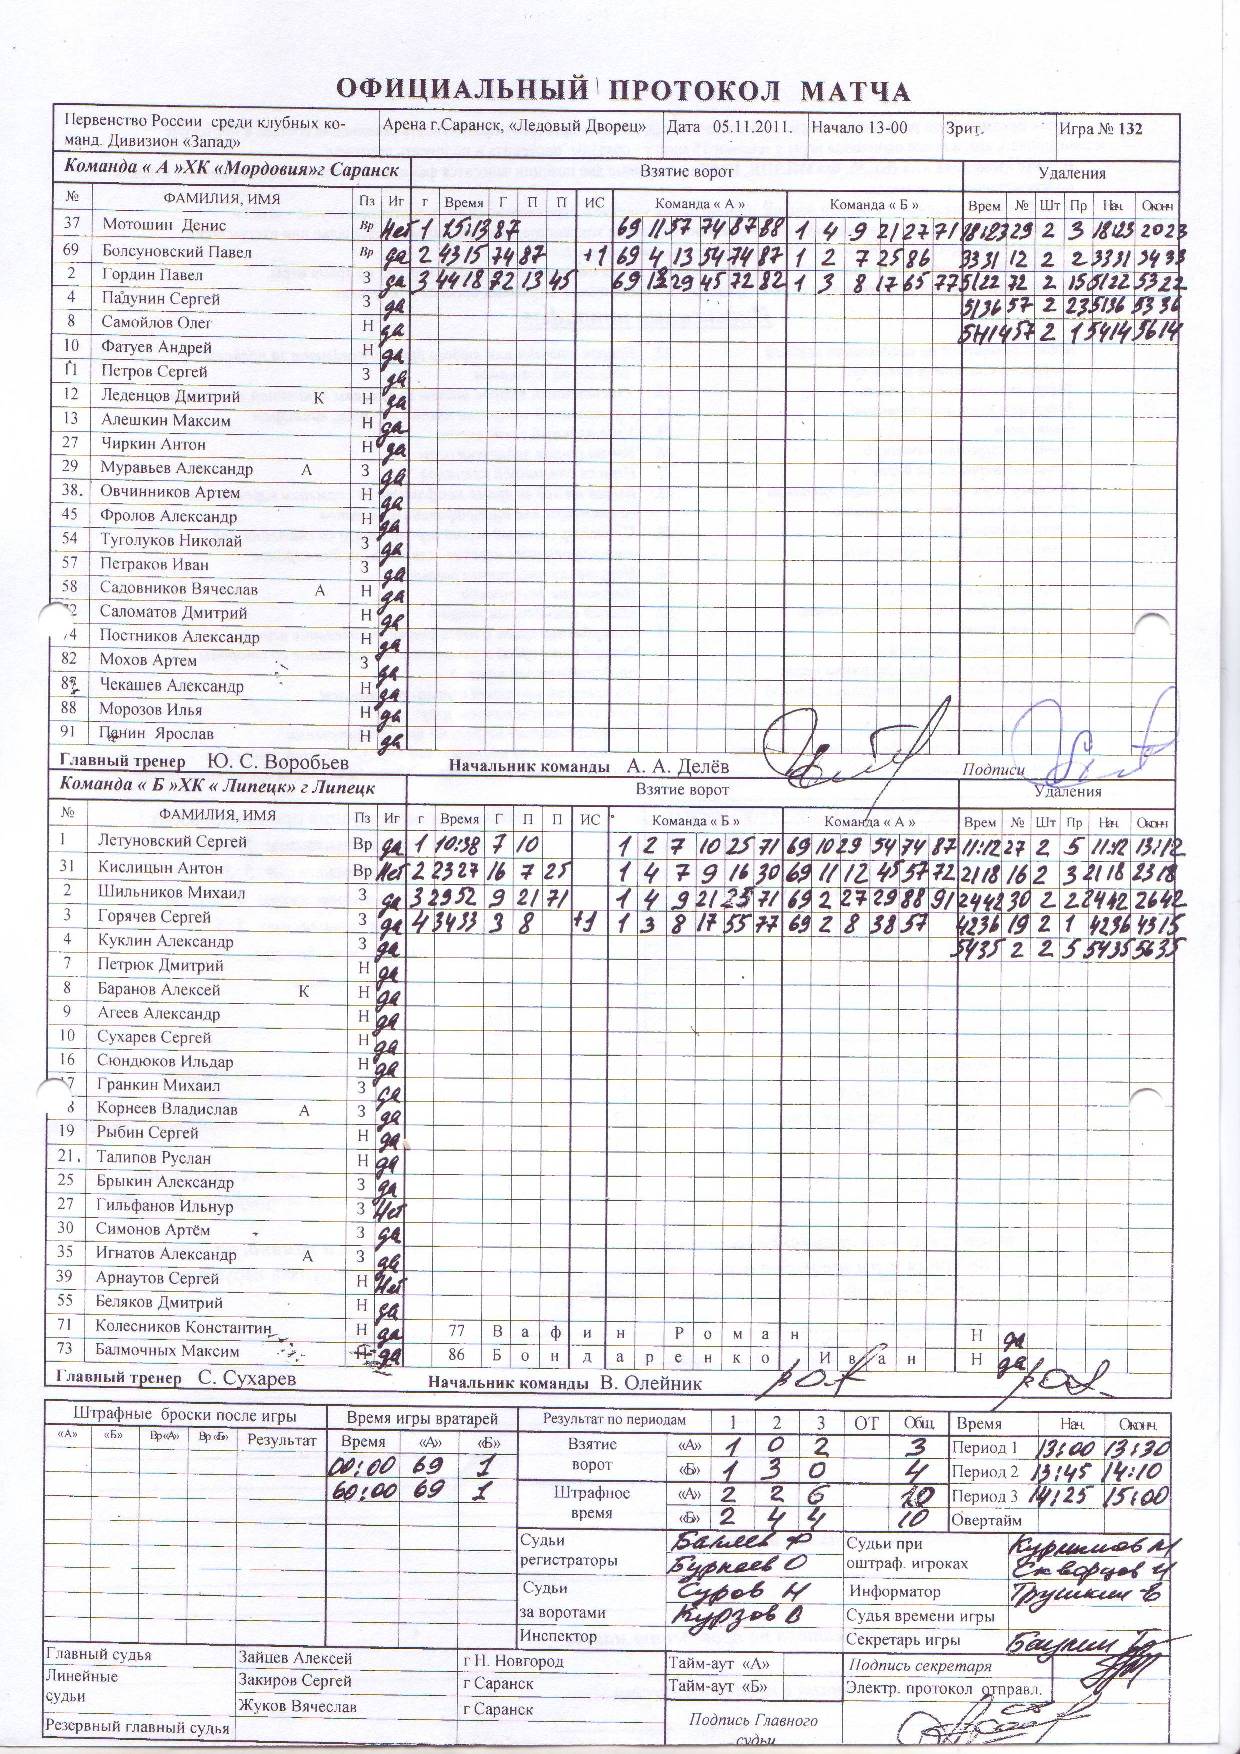 ОФИЦИАЛЬНЫЙ ПРОТОКОЛ МАТЧА
Первенство России среди клубных ко- Арена г.Саранск, «Ледовый Дворец» Дата 05.11.2011. Начало 13-00 Зрит. Игра № 132
манд. Дивизион «Запад»
Команда « А »ХК «Мордовия»г Саранск Взятие ворот Удаления
№ ФАМИЛИЯ, ИМЯ Пз Иг г Время Г П П ИС Команда « А » Команда « Б » Врем № Шт Пр Нач. Оконч
37 Мотошин Денис Вр Нет 1 15:13 87 69 11 57 74 87 88 1 4 9 21 27 71 18:23 29 2 3 1823 2023
69 Болсуновский Павел Вр да 2 4315 74 87 +1 69 4 13 54 74 87 1 2 7 25 86 3331 12 2 2 3331 3433
2 Гордин Павел З да 3 4418 72 13 45 69 13 29 45 72 82 1 3 8 17 65 77 5122 72 2 15 5122 5322
4 Падунин Сергей З да 5136 57 2 23 5136 5336
8 Самойлов Олег Н да 5414 57 2 1 5414 5614
10 Фатуев Андрей Н да
11 Петров Сергей З да
12 Леденцов Дмитрий К Н да
13 Алешкин Максим Н да
27 Чиркин Антон Н да
29 Муравьев Александр А З да
38. Овчинников Артем Н да
45 Фролов Александр Н да
54 Туголуков Николай З да
57 Петраков Иван З да
58 Садовников Вячеслав А Н да
2 Саломатов Дмитрий Н да
4 Постников Александр Н да
82 Мохов Артем З да
87 Чекашев Александр Н да
88 Морозов Илья Н да
91 Панин Ярослав Н да
Главный тренер Ю. С. Воробьев Начальник команды А. А. Делёв Подписи
Команда « Б »ХК « Липецк» г Липецк Взятие ворот Удаления
№ ФАМИЛИЯ, ИМЯ Пз Иг г Время Г П П ИС Команда « Б » Команда « А » Врем № Шт Пр Нач Оконч
1 Летуновский Сергей Вр да 1 10:38 7 10 1 2 7 10 25 71 69 10 29 54 74 87 11:12 27 2 5 11:12 13:12
31 Кислицын Антон Вр Нет 2 2327 16 7 25 1 4 7 9 16 30 69 11 12 45 57 72 2118 16 2 3 2118 2318
2 Шильников Михаил З да 3 2952 9 21 71 1 4 9 21 25 71 69 2 27 29 88 91 2442 30 2 2 2442 2642
3 Горячев Сергей З да 4 3433 3 8 +1 1 3 8 17 55 77 69 2 8 38 57 4236 19 2 1 4236 4315
4 Куклин Александр З да 5435 2 2 5 5435 5635
7 Петрюк Дмитрий Н да
8 Баранов Алексей К Н да
9 Агеев Александр Н да
10 Сухарев Сергей Н да
16 Сюндюков Ильдар Н да
7 Гранкин Михаил З да
8 Корнеев Владислав А З да
19 Рыбин Сергей Н да
21. Талипов Руслан Н да
25 Брыкин Александр З да
27 Гильфанов Ильнур З Нет
30 Симонов Артём З да
35 Игнатов Александр А З да
39 Арнаутов Сергей Н Нет
55 Беляков Дмитрий Н да
71 Колесников Константин Н да 77 Вафин Роман Н да
73 Балмочных Максим Н да 86 Бондаренко Иван Н да
Главный тренер С. Сухарев Начальник команды В. Олейник
Штрафные броски после игры Время игры вратарей Результат по периодам 1 2 3 ОТ Общ. Время Нач. Оконч.
«А» «Б» Вр«А» Вр«Б» Результат Время «А» «Б» Взятие ворот «А» 1 0 2 3 Период 1 13:00 13:30
00:00 69 1 «Б» 1 3 0 4 Период 2 13:45 14:10
60:00 69 1 Штрафное время «А» 2 2 6 10 Период 3 14:25 15:00
«Б» 2 4 4 10 Овертайм
Судьи регистраторы Судьи при оштраф. игроках
Бурнаев О Скворцов И
Судьи за воротами Суров Н Информатор Трушкин В
Курзов В Судья времени игры
Инспектор Секретарь игры
Главный судья Зайцев Алексей г Н. Новгород Тайм-аут «А» Подпись секретаря
Линейные судьи Закиров Сергей г Саранск Тайм-аут «Б» Электр. протокол отправл.
Жуков Вячеслав г Саранск Подпись Главного судьи
Резервный главный судья